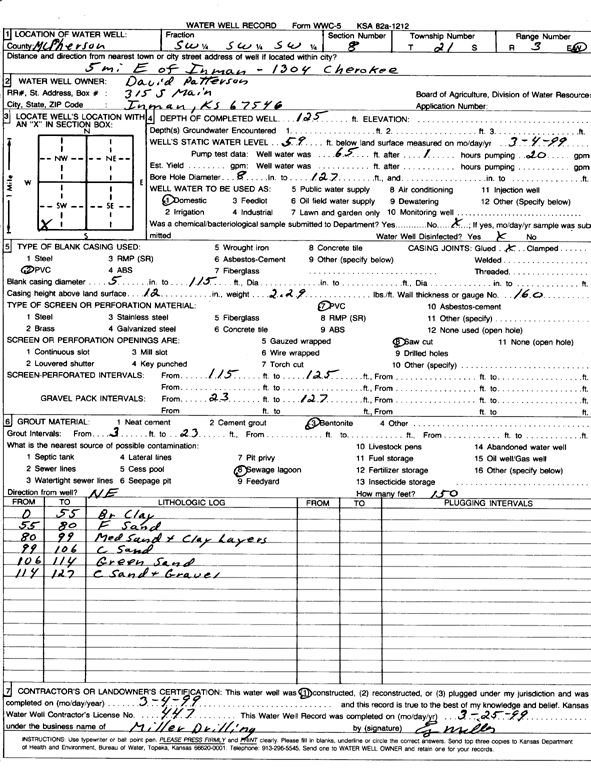 WATER WELL RECORD Form WWC-5 KSA 82a-1212
1 LOCATION OF WATER WELL: Fraction Section Number Township Number Range Number
County: McPherson SW ¼ SW ¼ SW ¼ 8 T 21 S R 3 E/W
Distance and direction from nearest town or city street address of well if located within city?
5 mi E of Inman - 1304 Cherokee
2 WATER WELL OWNER: David Patterson
RR#, St. Address, Box # : 315 S Main Board of Agriculture, Division of Water Resource
City, State, ZIP Code : Inman, KS 67546 Application Number:
3 LOCATE WELL'S LOCATION WITH AN "X" IN SECTION BOX:
N
NW NE
W E
SW SE
X
S
1 Mile
4 DEPTH OF COMPLETED WELL 125 ft. ELEVATION:
Depth(s) Groundwater Encountered 1. ft. 2. ft. 3. ft.
WELL'S STATIC WATER LEVEL 59 ft. below land surface measured on mo/day/yr 3-4-99
Pump test data: Well water was 65 ft. after 1 hours pumping 20 gpm
Est. Yield gpm: Well water was ft. after hours pumping gpm
Bore Hole Diameter 8 in. to 127 ft., and in. to ft.
WELL WATER TO BE USED AS: 5 Public water supply 8 Air conditioning 11 Injection well
1 Domestic 3 Feedlot 6 Oil field water supply 9 Dewatering 12 Other (Specify below)
2 Irrigation 4 Industrial 7 Lawn and garden only 10 Monitoring well
Was a chemical/bacteriological sample submitted to Department? Yes No X ; If yes, mo/day/yr sample was sub
mitted Water Well Disinfected? Yes X No
5 TYPE OF BLANK CASING USED: 5 Wrought iron 8 Concrete tile CASING JOINTS: Glued X Clamped
1 Steel 3 RMP (SR) 6 Asbestos-Cement 9 Other (specify below) Welded
2 PVC 4 ABS 7 Fiberglass Threaded
Blank casing diameter 5 in. to 115 ft., Dia in. to ft., Dia in. to ft.
Casing height above land surface 12 in., weight 2.29 lbs./ft. Wall thickness or gauge No. 160
TYPE OF SCREEN OR PERFORATION MATERIAL: 7 PVC 10 Asbestos-cement
1 Steel 3 Stainless steel 5 Fiberglass 8 RMP (SR) 11 Other (specify)
2 Brass 4 Galvanized steel 6 Concrete tile 9 ABS 12 None used (open hole)
SCREEN OR PERFORATION OPENINGS ARE: 5 Gauzed wrapped 8 Saw cut 11 None (open hole)
1 Continuous slot 3 Mill slot 6 Wire wrapped 9 Drilled holes
2 Louvered shutter 4 Key punched 7 Torch cut 10 Other (specify)
SCREEN-PERFORATED INTERVALS: From 115 ft. to 125 ft., From ft. to ft.
From ft. to ft., From ft. to ft.
GRAVEL PACK INTERVALS: From 23 ft. to 127 ft., From ft. to ft.
From ft. to ft., From ft. to ft.
6 GROUT MATERIAL: 1 Neat cement 2 Cement grout 3 Bentonite 4 Other
Grout Intervals: From 3 ft. to 23 ft., From ft. to ft., From ft. to ft.
What is the nearest source of possible contamination: 10 Livestock pens 14 Abandoned water well
1 Septic tank 4 Lateral lines 7 Pit privy 11 Fuel storage 15 Oil well/Gas well
2 Sewer lines 5 Cess pool 8 Sewage lagoon 12 Fertilizer storage 16 Other (specify below)
3 Watertight sewer lines 6 Seepage pit 9 Feedyard 13 Insecticide storage
Direction from well? NE How many feet? 150
FROM TO LITHOLOGIC LOG FROM TO PLUGGING INTERVALS
0 55 Br Clay
55 80 F Sand
80 99 Med Sand & Clay Layers
99 106 C Sand
106 114 Green Sand
114 127 C Sand & Gravel
7 CONTRACTOR'S OR LANDOWNER'S CERTIFICATION: This water well was (1) constructed, (2) reconstructed, or (3) plugged under my jurisdiction and was
completed on (mo/day/year) 3-4-99 and this record is true to the best of my knowledge and belief. Kansas
Water Well Contractor's License No. 447 This Water Well Record was completed on (mo/day/yr) 3-25-99
under the business name of Miller Drilling by (signature) G Miller
INSTRUCTIONS: Use typewriter or ball point pen. PLEASE PRESS FIRMLY and PRINT clearly. Please fill in blanks, underline or circle the correct answers. Send top three copies to Kansas Department
of Health and Environment, Bureau of Water, Topeka, Kansas 66620-0001. Telephone: 913-296-5545. Send one to WATER WELL OWNER and retain one for your records.